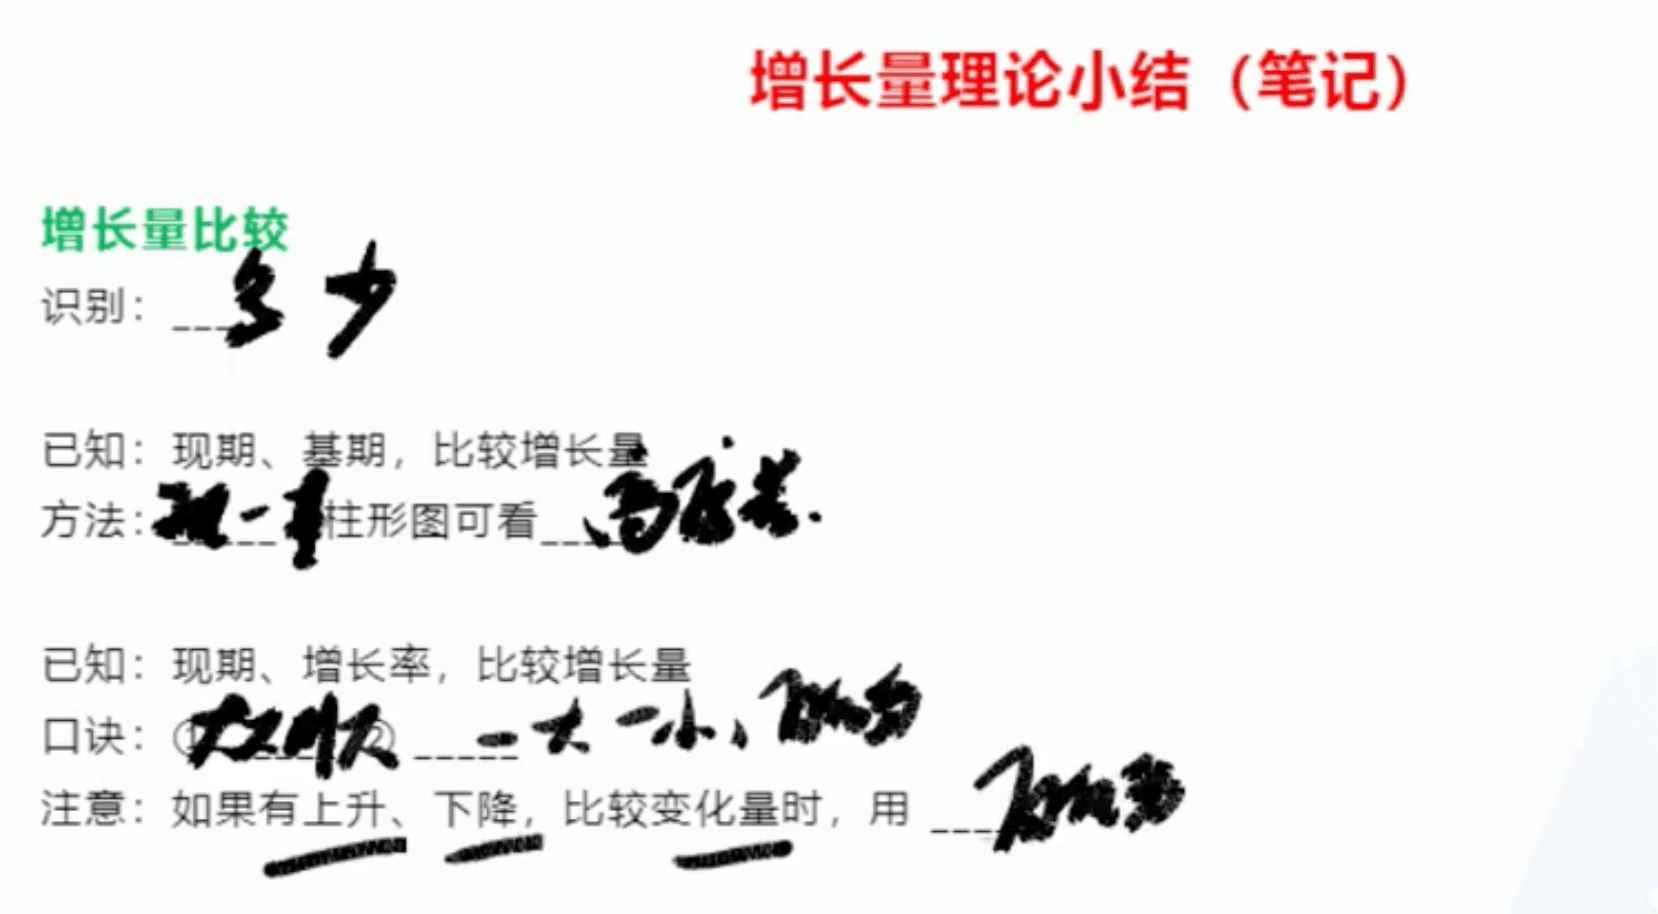 增长量理论小结（笔记）
增长量比较
识别：___多少
已知：现期、基期，比较增长量
方法：现-基 柱形图可看____高度差.
已知：现期、增长率，比较增长量
口诀：①大大则大② _____一大一小，
注意：如果有上升、下降，比较变化量时，用 ___